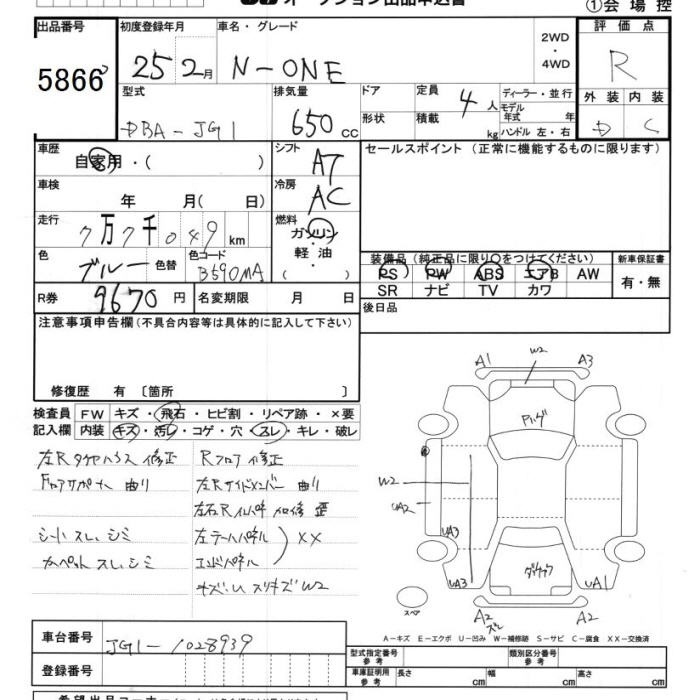 オークション出品申込書
①会場控
出品番号 初度登録年月 車名・グレード 2WD・4WD 評価点
5866 25 2月 N-ONE R
型式 排気量 ドア 定員 ディーラー・並行 外装 内装
DBA-JG1 650cc 4人 モデル年式 年 D C
形状 積載 kg ハンドル 左・右
車歴 シフト セールスポイント (正常に機能するものに限ります)
自家用・( ) AT
車検 冷房
年 月( 日) AC
走行 燃料
7万7千049km ガソリン
色 ブルー 色替 色コード B590MA 軽油・( )
装備品 (純正品に限り○をつけてください) 新車保証書
PS PW ABS エアB AW 有・無
SR ナビ TV カワ
R券 9670円 名変期限 月 日 後日品
注意事項申告欄 (不具合内容等は具体的に記入して下さい)
修復歴 有 〔箇所 〕
検査員 FW キズ・飛石・ヒビ割・リペア跡・×要
記入欄 内装 キズ・汚レ・コゲ・穴・スレ・キレ・破レ
左Rタイヤハウス 修正 Rフロア 修正
Fロアサポート 曲り 左Rサイドメンバー 曲り
左右Rインパネ 歪
シート スレ、シミ 左テールパネル
××
カーペット スレ、シミ エンドパネル
キズ、U スリキズ W2
A1 W2 A3
W2
UA2
UA3
UA3 UA1
スペア A2 スレ A2
A-キズ E-エクボ U-凹み W-補修跡 S-サビ C-腐食 XX-交換済
車台番号 JG1-1028939
登録番号
型式指定番号 参考 類別区分番号 参考
車庫証明用 参考 長さ cm 幅 cm 高さ cm
希望出品コーナー